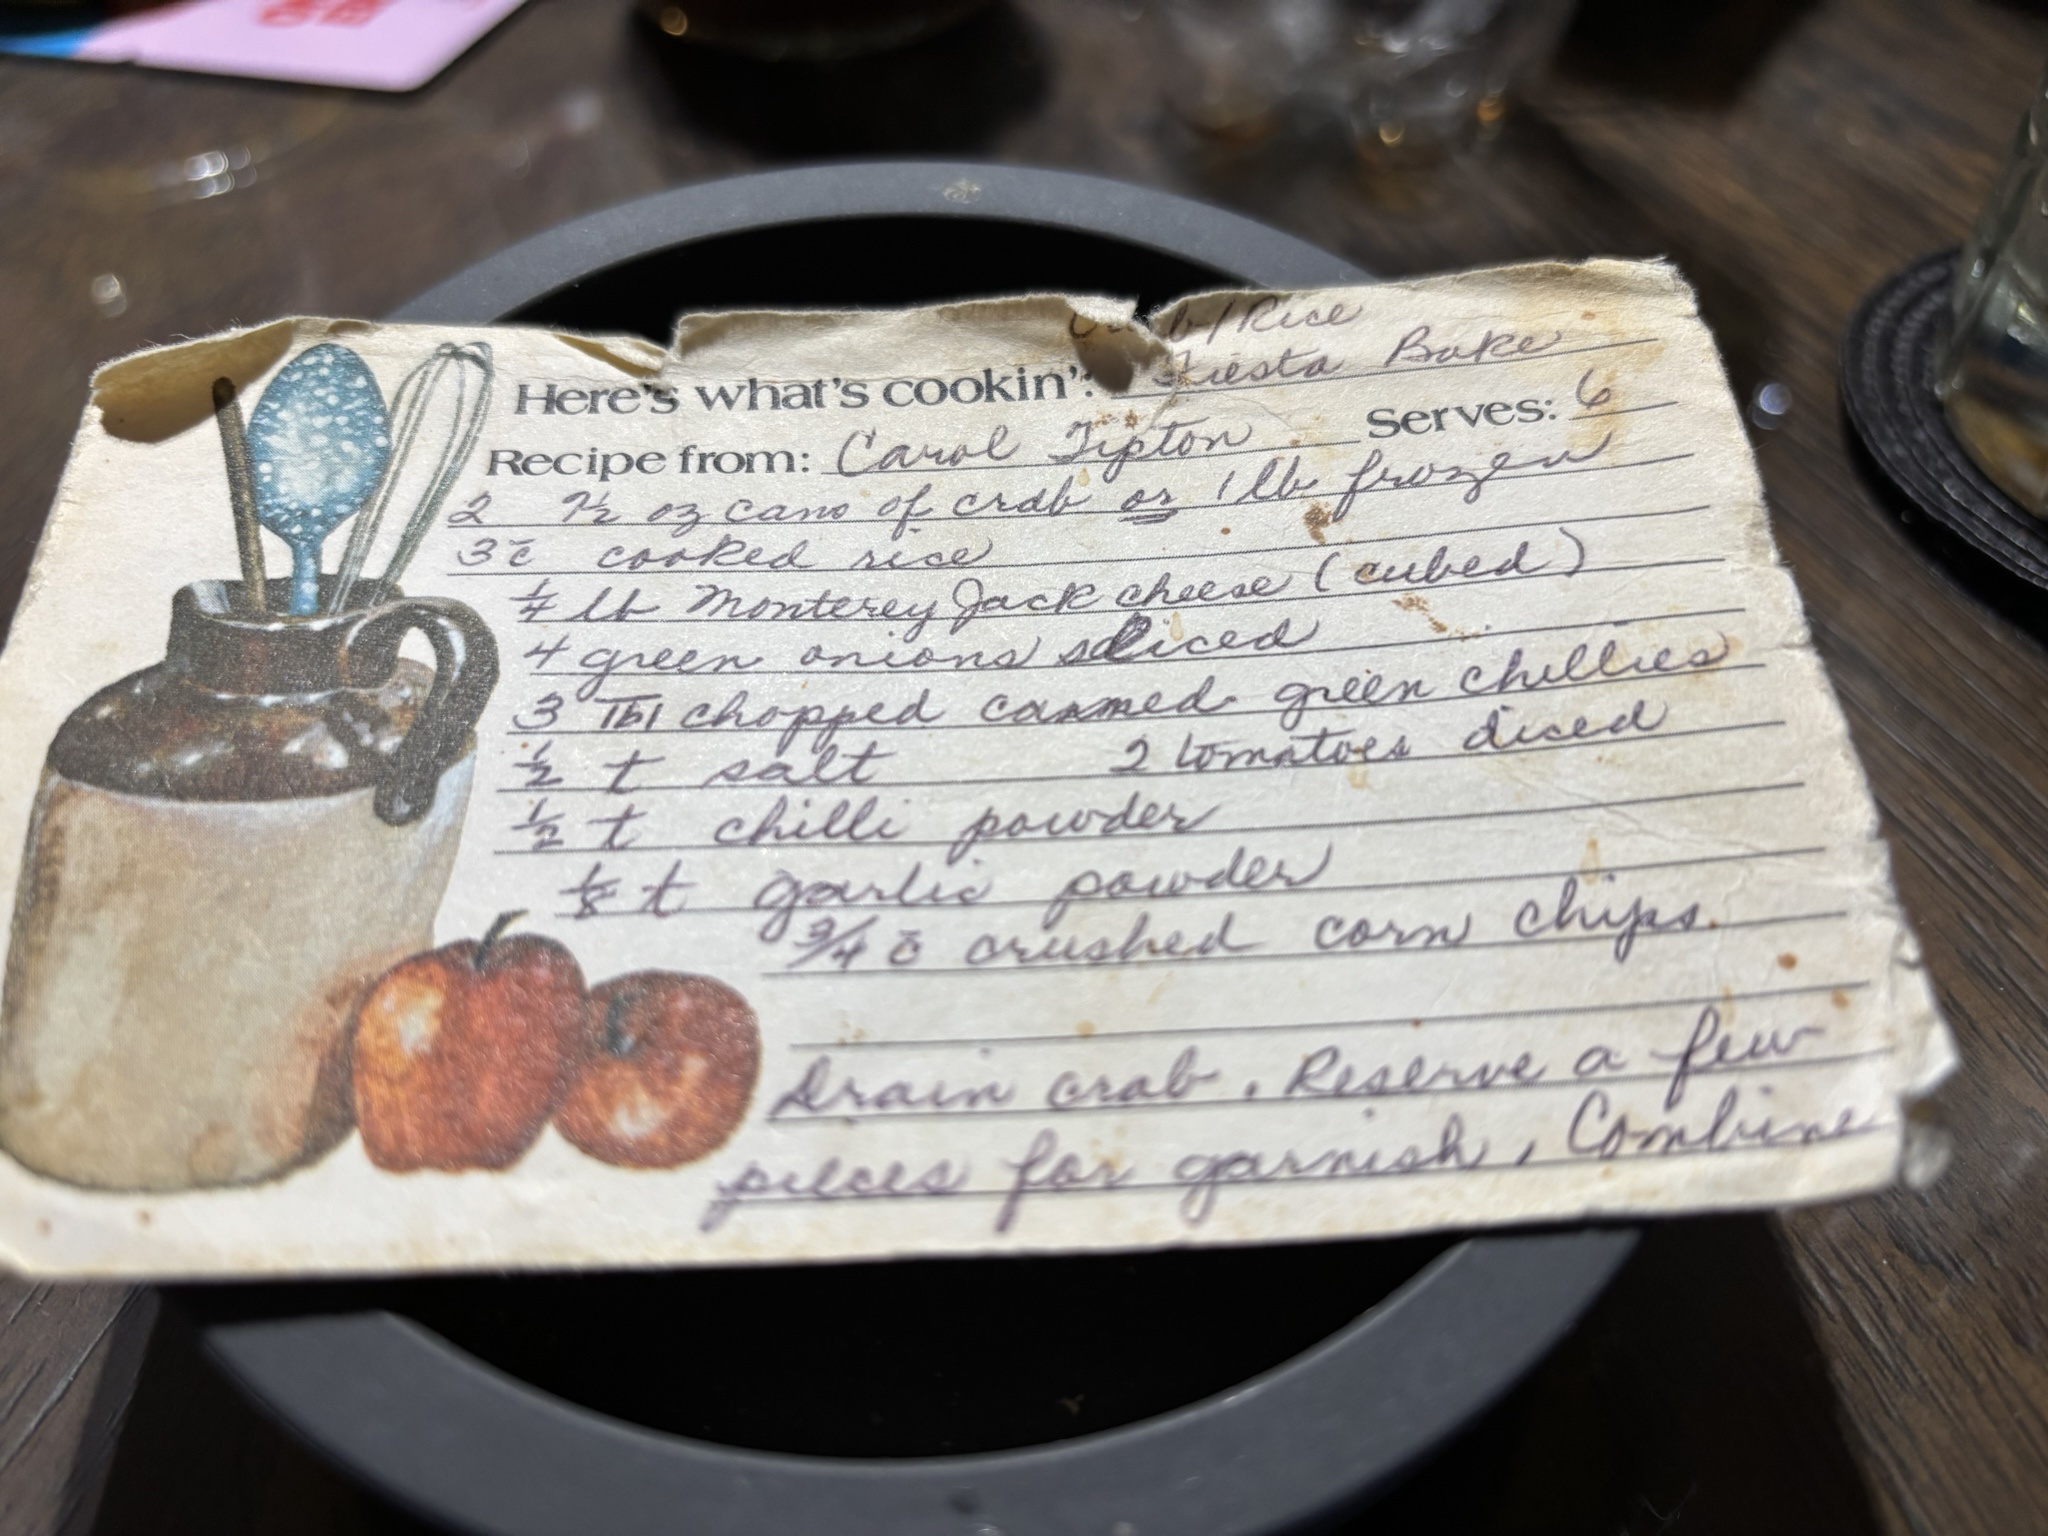 Crab/Rice
Here's what's cookin': Fiesta Bake
Recipe from: Carol Tipton Serves: 6
2 7½ oz cans of crab or 1 lb frozen
3 c̄ cooked rice
¼ lb Monterey Jack cheese (cubed)
4 green onions sliced
3 Tbl chopped canned green chillies
½ t salt 2 tomatoes diced
½ t chilli powder
⅛ t garlic powder
3/4 c̄ crushed corn chips.
Drain crab. Reserve a few
pieces for garnish, Combine